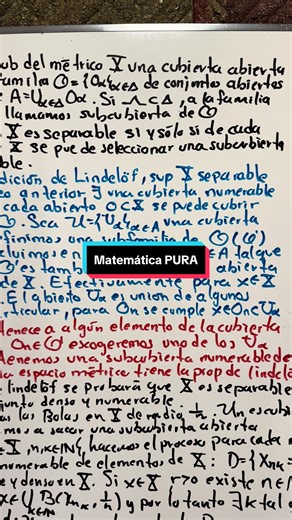 ub del métrico X una cubierta abierta
familia O={Oα}α∈Δ de conjuntos abiertos
e A=Uα∈Δ Oα. Si Λ⊂Δ, a la familia
llamamos subcubierta de O
X es separable si y sólo si de cada
X se puede seleccionar una subcubierta
ble.
dición de Lindelöf, sup X separable
o anterior ∃ una cubierta numerable
cada abierto O⊂X se puede cubrir
O. Sea U={Uα}α∈A una cubierta
finimos una subfamilia de O
cluimos en
α∈A talque
Matemática PURA
O' es tam
abierta
de X. Efectivamente para x∈X
. El abierto Uα es union de algunos
ticular, para On se cumple x∈On⊂Uα
tenece a algún elemento de la cubierta
On∈O' escogeremos uno de los Uα
tenemos una subcubierta numerable de
la espacio métrico tiene la prop de lindelö
lindelöf se probará que X es separable
junto denso y numerable.
as las Bolas en X de radio 1/n. Un es cubi
mos a sacar una subcubierta abierta
∈X, nk∈N}, hacemos el proceso para cada n
numerable de elementos de X: D={Xnk
e y denso en X. Si x∈X r>0 existe n∈N
x∈U B(Xnk, 1/n) y por lo tanto ∃k tal q